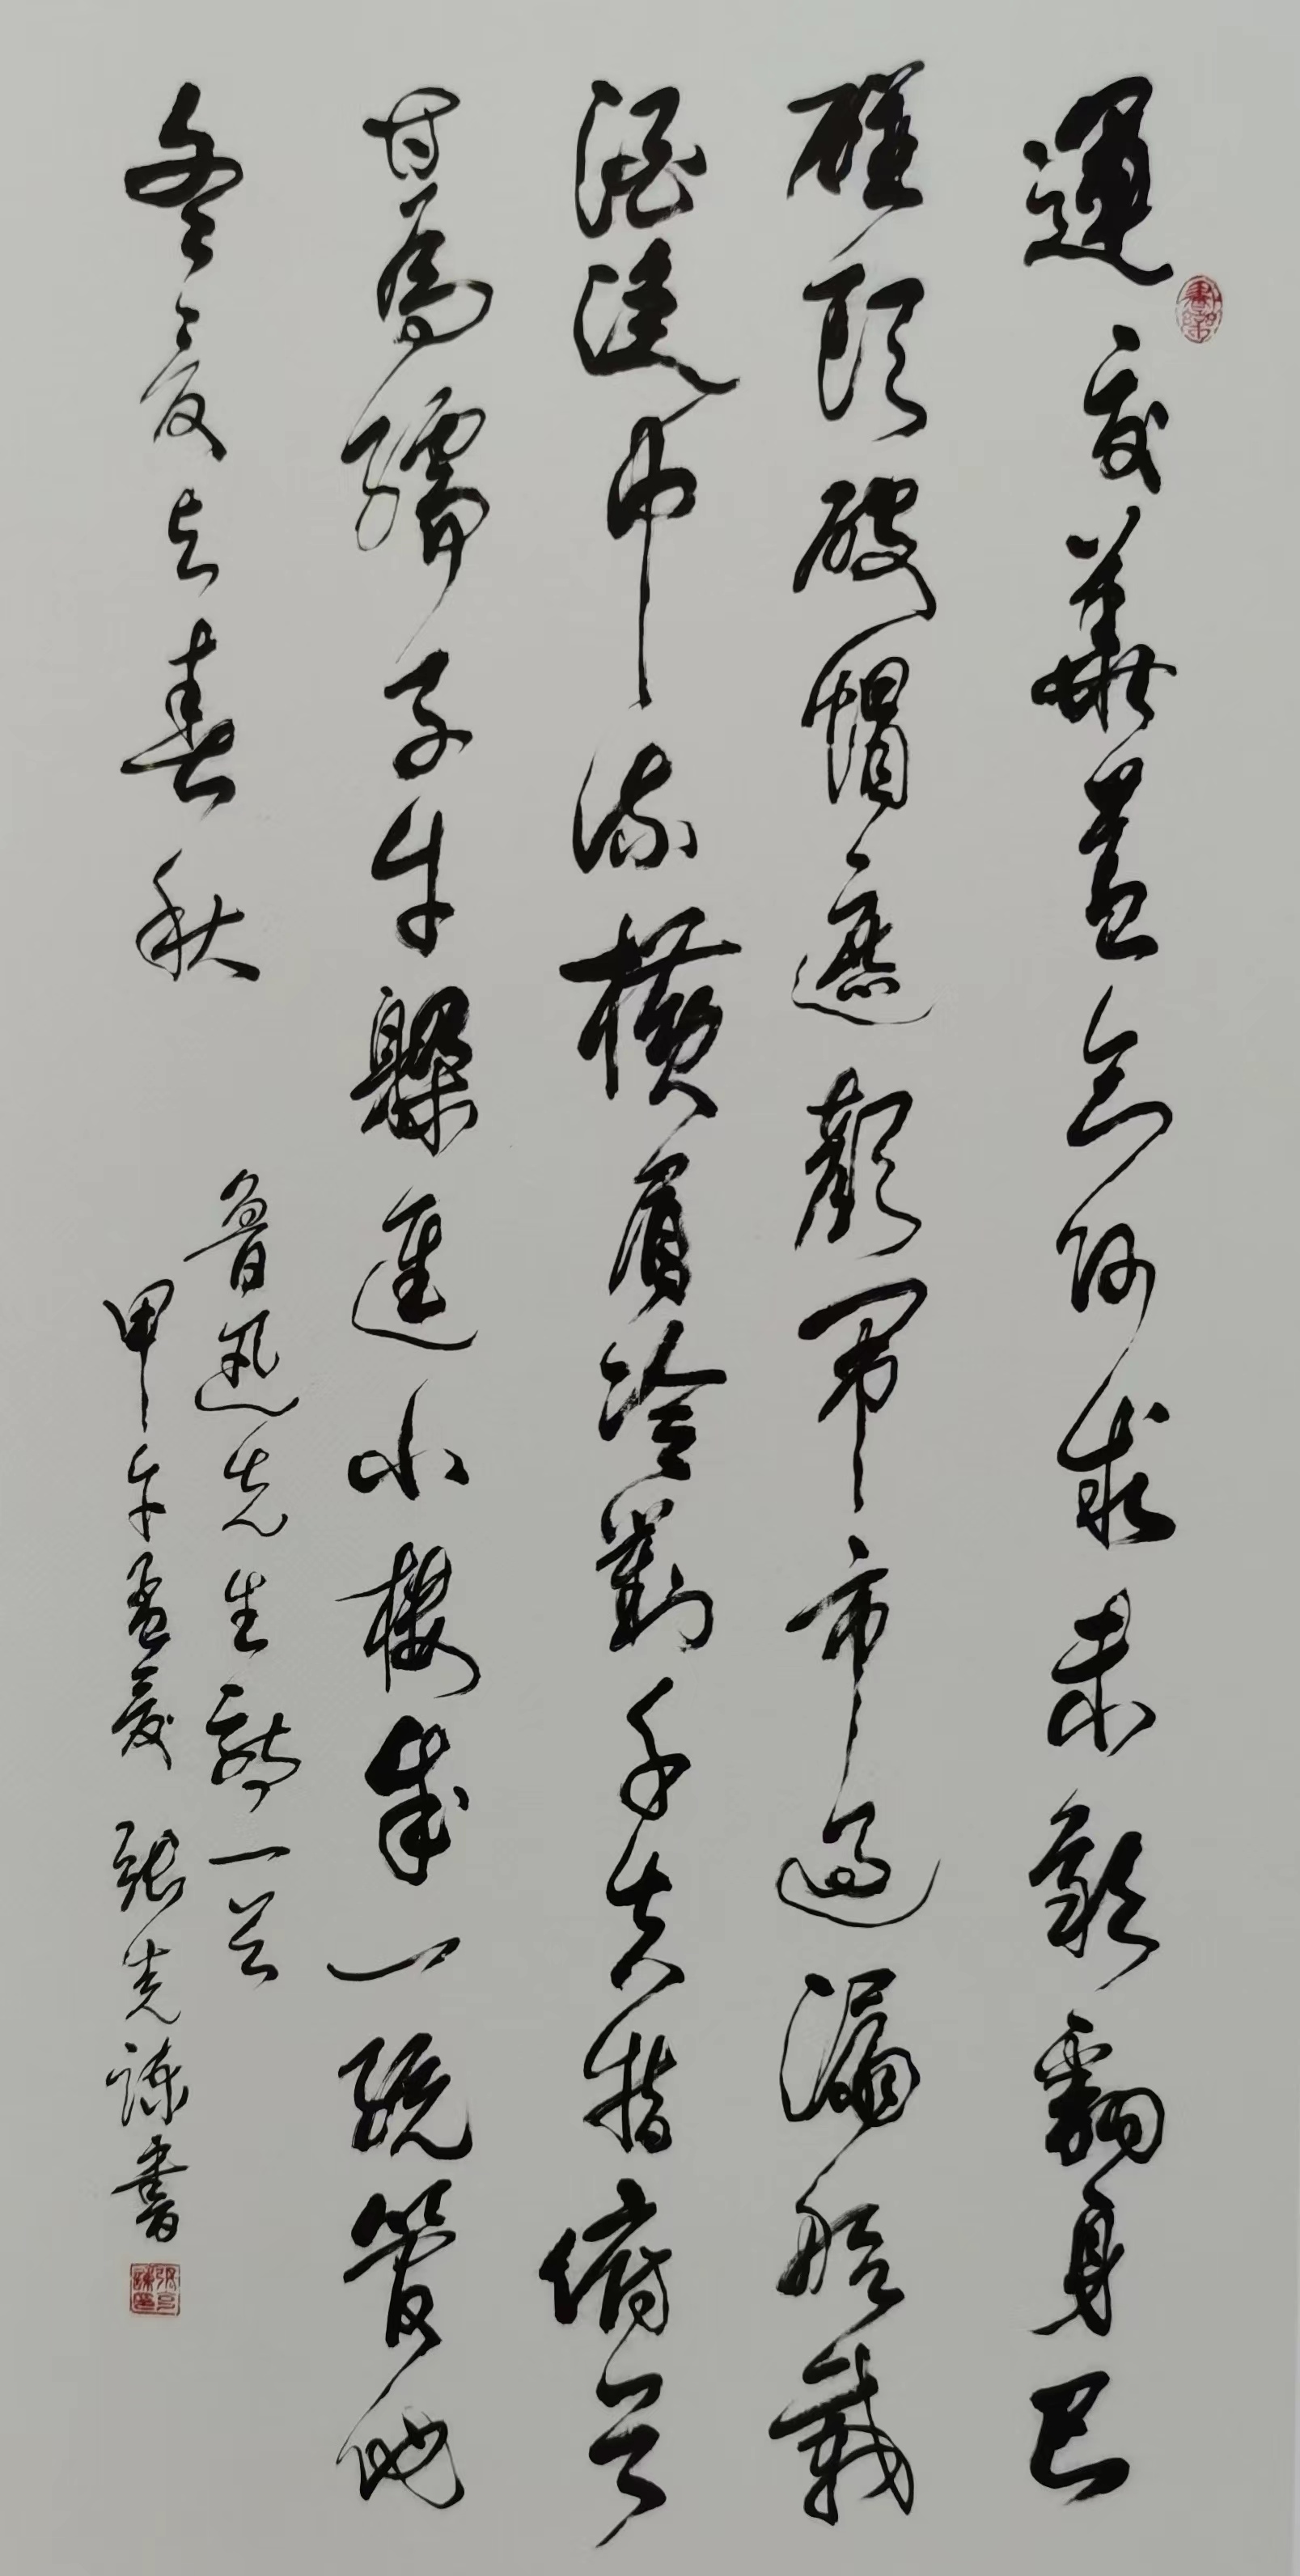 運交華蓋欲何求未敢翻身已
碰頭破帽遮顏鬧市過漏船載
酒泛中流橫眉冷對千夫指俯首
甘為孺子牛躲進小樓成一統管他
冬夏与春秋
魯迅先生詩一首
甲午孟夏 張先諫書